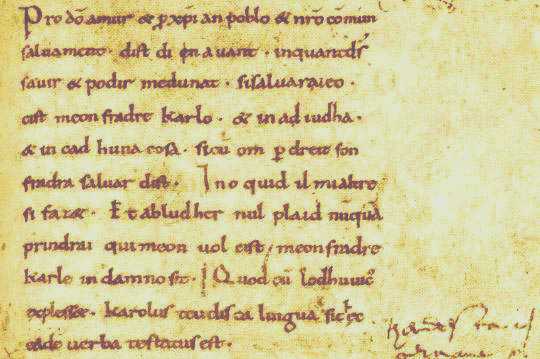 Pro dō amur & p xp̄ian poblo & nr̄o cōmun
saluament · dist di en auant · inquantdš
sauir & podir medunat · sisaluaraieo ·
cist meon fradre Karlo · & in ad iudha ·
& in cad huna cosa · sicū om p dreit son
fradra saluar dist · Ino quid il mialtre
si faz& · Et abludher nul plaid nūquā
prindrai qui meon uol cist meon fradre
Karle in damno sit · Quod cū lodhuuic9
explesset · Karolus teudisca lingua sic
eadē uerba testatus est ·